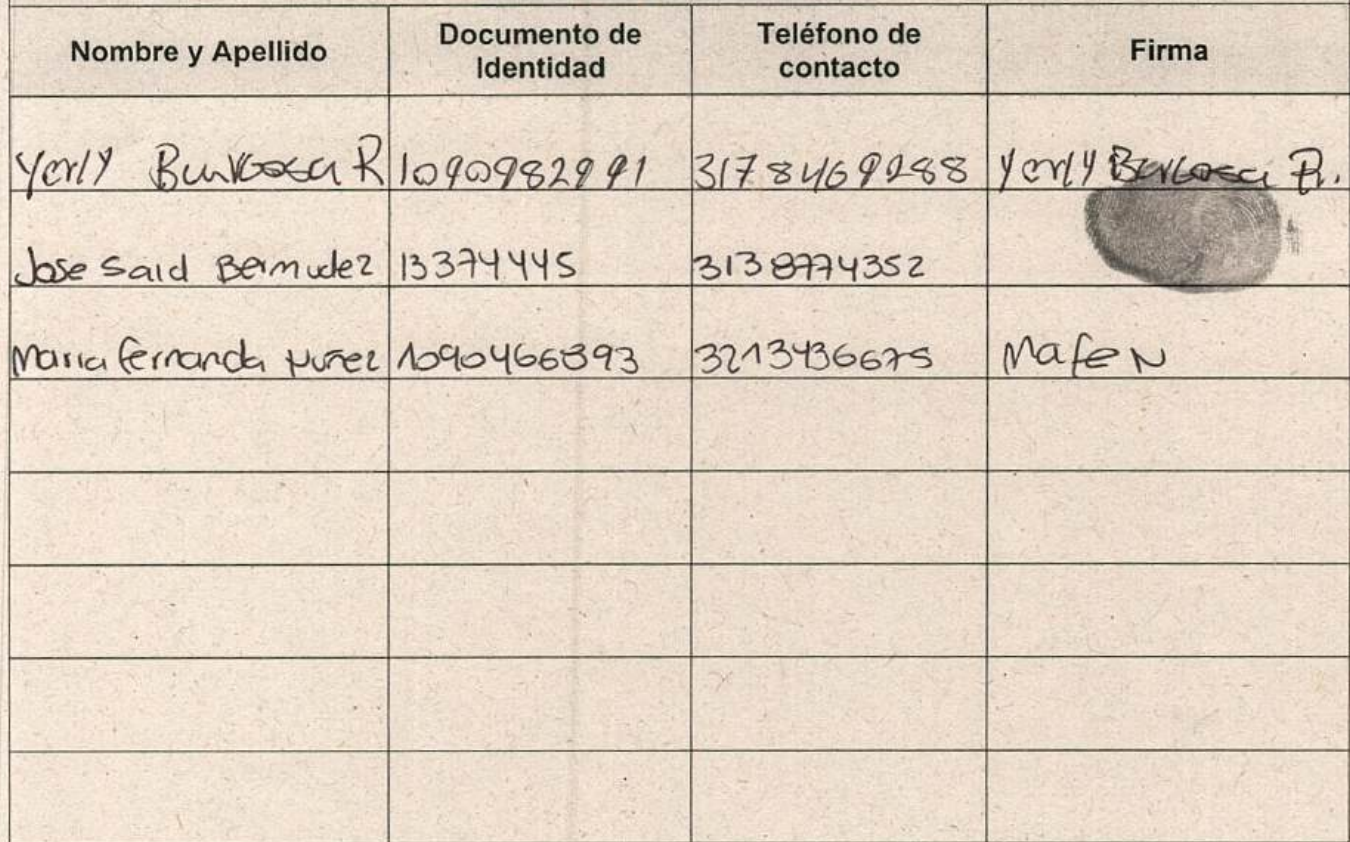 Nombre y Apellido Documento de Identidad Teléfono de contacto Firma
Yerly Burbosa R 1090982991 3178469288 Yerly Barbosa R.
Jose Said Bermudez 13374445 3138774352
Maria fernanda Nuñez 1090466393 3213436675 Mafe N